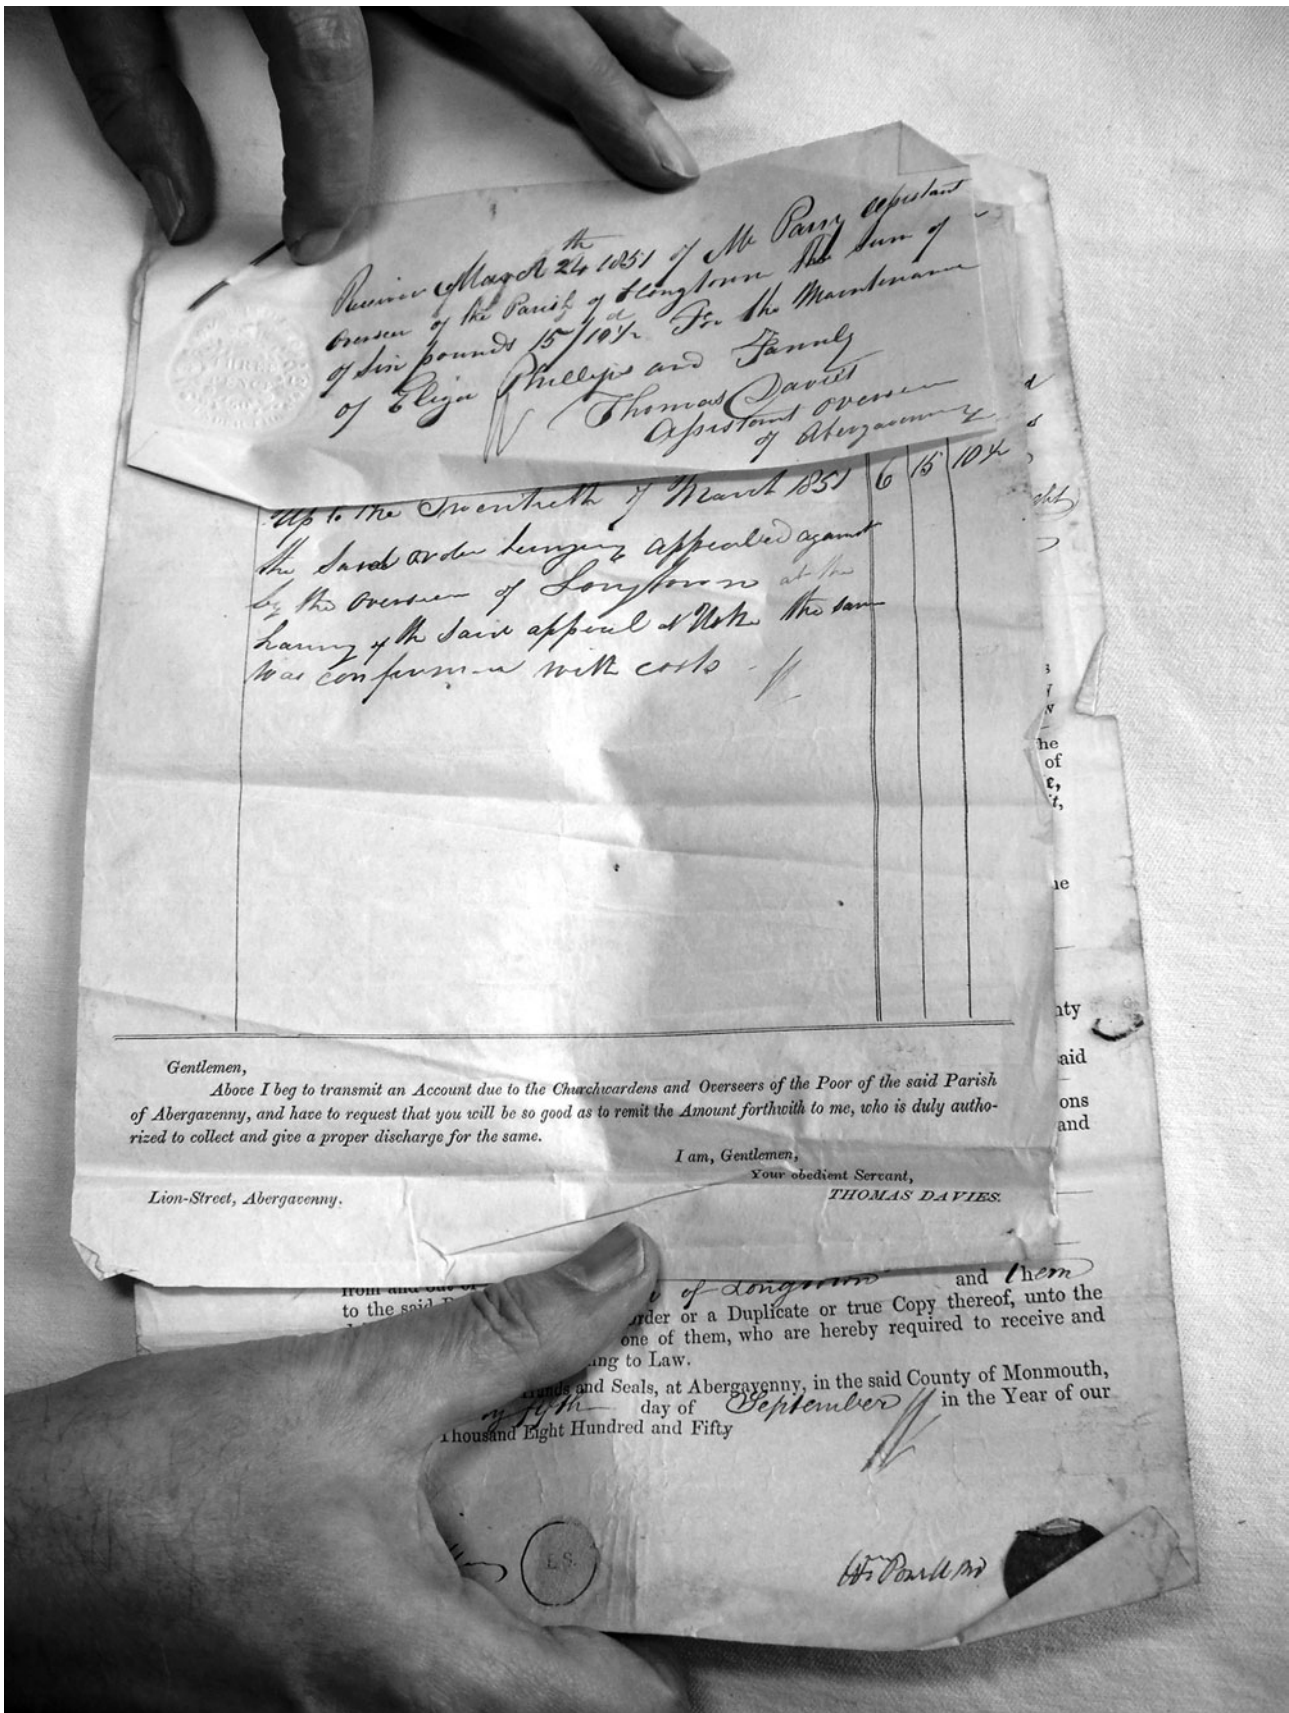 Received March 24th 1851 of Mr Parry Assistant
overseer of the Parish of Longtown the Sum of
of Six pounds 15/10½d For the Maintenance
of Eliza Phillips and Family
Thomas Davies
Assistant overseer
of Abergavenny
THREE
PENCE
Up to the Twentieth of March 1851 6 15 10½
the Said order being appealed against
by the overseer of Longtown at the
hearing of the Said appeal at Usk the same
was confirmed with costs
he
of
nty
aid
ons
and
Gentlemen,
Above I beg to transmit an Account due to the Churchwardens and Overseers of the Poor of the said Parish
of Abergavenny, and have to request that you will be so good as to remit the Amount forthwith to me, who is duly autho-
rized to collect and give a proper discharge for the same.
I am, Gentlemen,
Your obedient Servant,
Lion-Street, Abergavenny. THOMAS DAVIES.
from and out of of Longtown and them
to the said order or a Duplicate or true Copy thereof, unto the
one of them, who are hereby required to receive and
ing to Law.
Hands and Seals, at Abergavenny, in the said County of Monmouth,
ty fifth day of September in the Year of our
Thousand Eight Hundred and Fifty
L.S.
Wm Powell